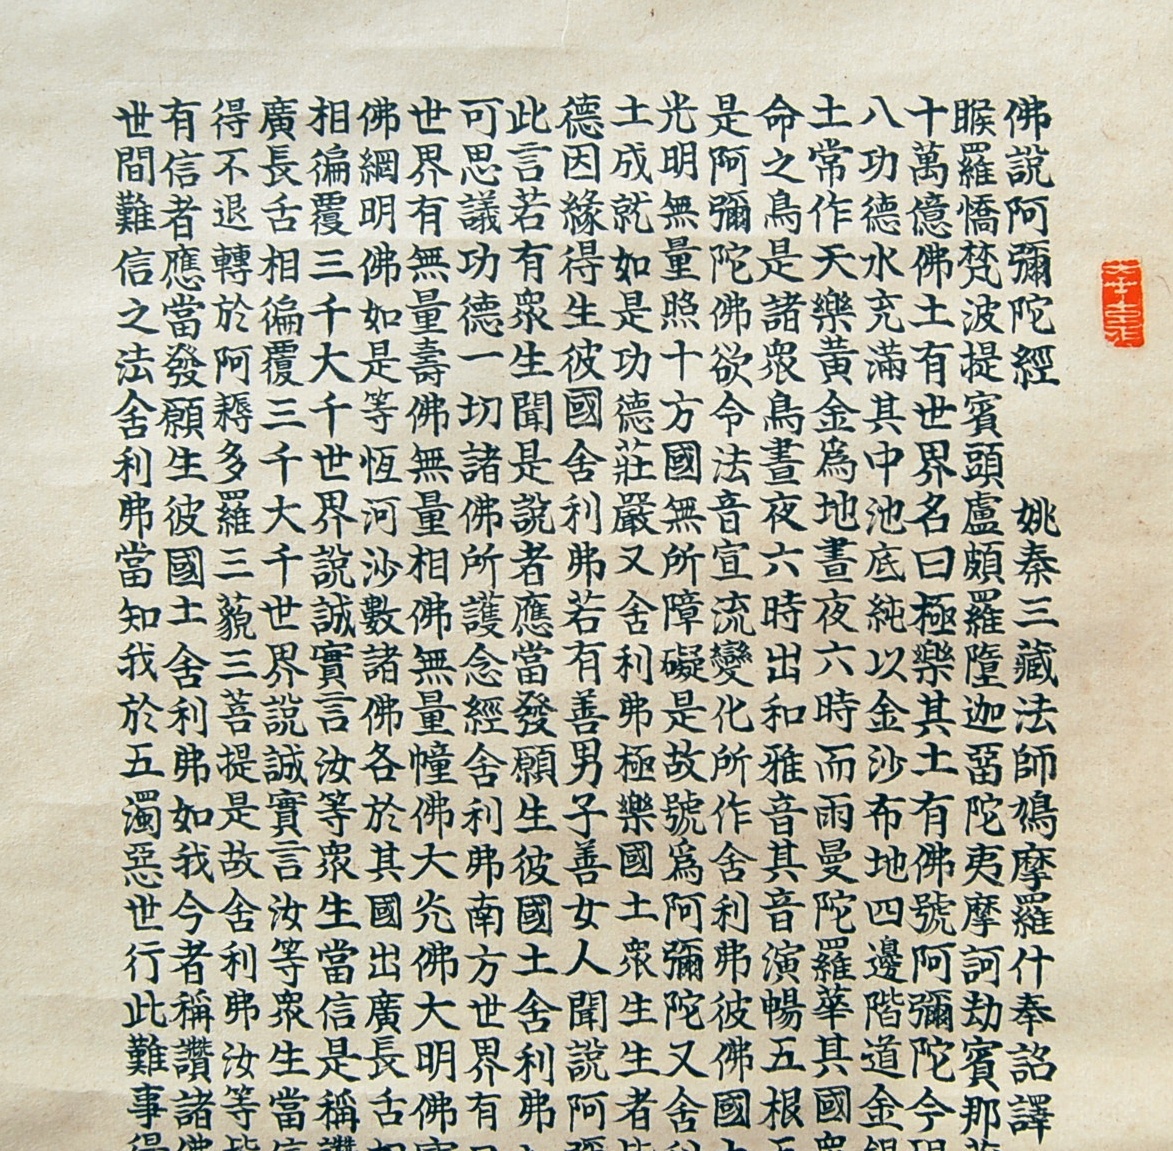 佛說阿彌陀經 姚秦三藏法師鳩摩羅什奉詔譯
睺羅憍梵波提賓頭盧頗羅墮迦留陀夷摩訶劫賓那
十萬億佛土有世界名曰極樂其土有佛號阿彌陀今現
八功德水充滿其中池底純以金沙布地四邊階道金銀
土常作天樂黃金為地晝夜六時而雨曼陀羅華其國眾
命之鳥是諸眾鳥晝夜六時出和雅音其音演暢五根五
是阿彌陀佛欲令法音宣流變化所作舍利弗彼佛國土
光明無量照十方國無所障礙是故號為阿彌陀又舍利
土成就如是功德莊嚴又舍利弗極樂國土眾生生者皆
德因緣得生彼國舍利弗若有善男子善女人聞說阿彌
此言若有眾生聞是說者應當發願生彼國土舍利弗
可思議功德一切諸佛所護念經舍利弗南方世界有日
世界有無量壽佛無量相佛無量幢佛大光佛大明佛寶
佛網明佛如是等恆河沙數諸佛各於其國出廣長舌相
相徧覆三千大千世界說誠實言汝等眾生當信是稱讚
廣長舌相徧覆三千大千世界說誠實言汝等眾生當信
得不退轉於阿耨多羅三藐三菩提是故舍利弗汝等皆
有信者應當發願生彼國土舍利弗如我今者稱讚諸佛
世間難信之法舍利弗當知我於五濁惡世行此難事得